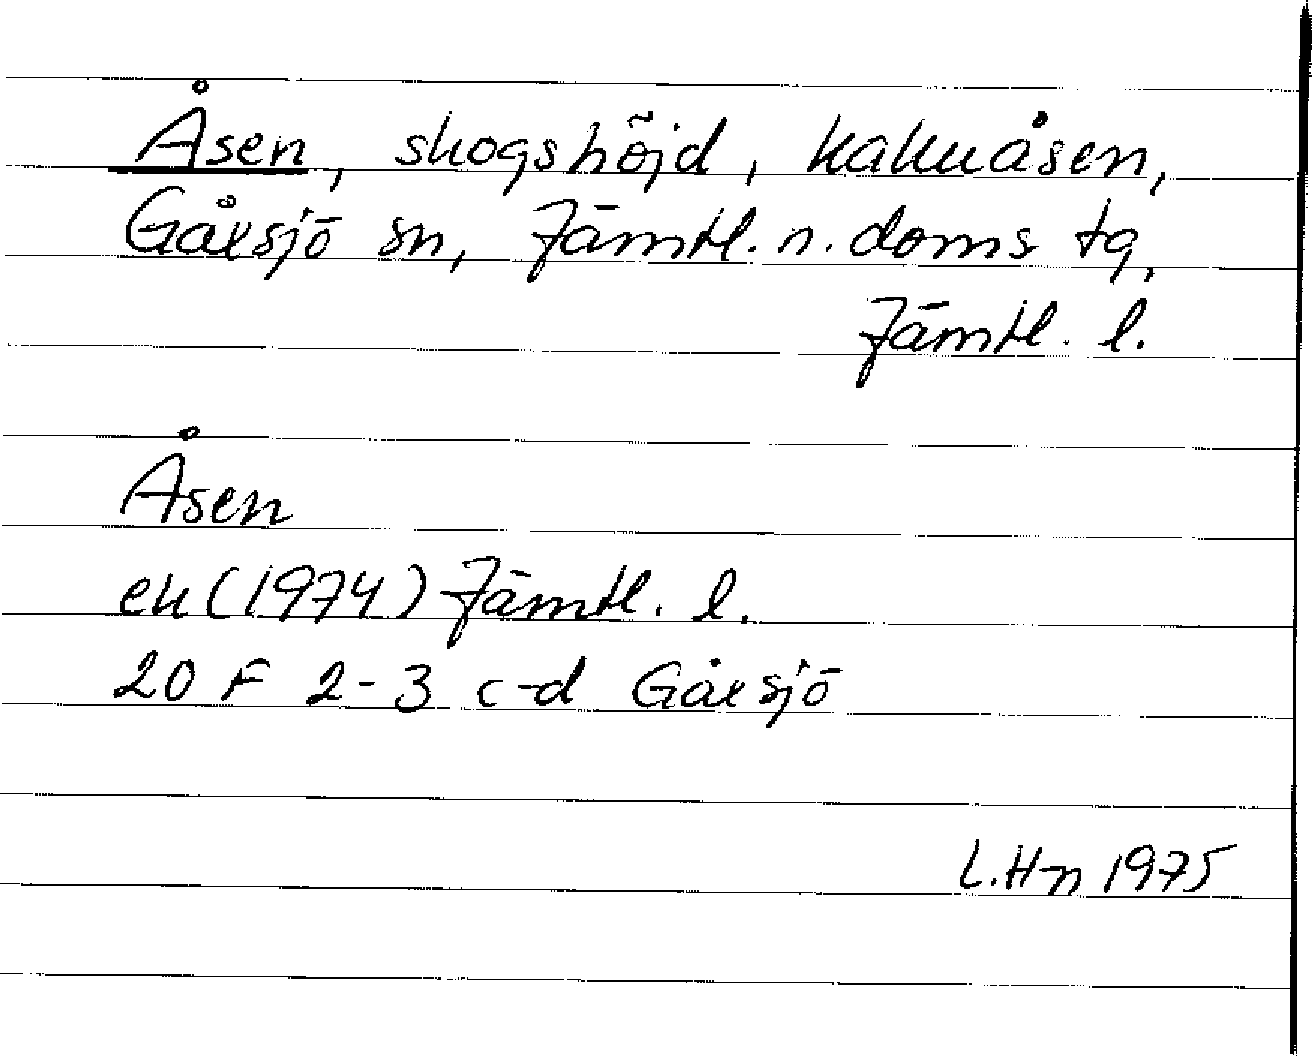 Åsen, skogshöjd, Kakuåsen,
Gåxsjö sn, Jämtl. n. doms tg,
Jämtl. l.
Åsen
ek (1974) Jämtl. l.
20 F 2-3 c-d Gåxsjö
L.Hn 1975